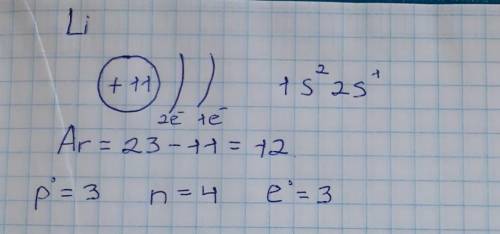 Li
+11 2e⁻ 1e⁻ 1s² 2s¹
Ar = 23 - 11 = 12
p° = 3 n = 4 e° = 3